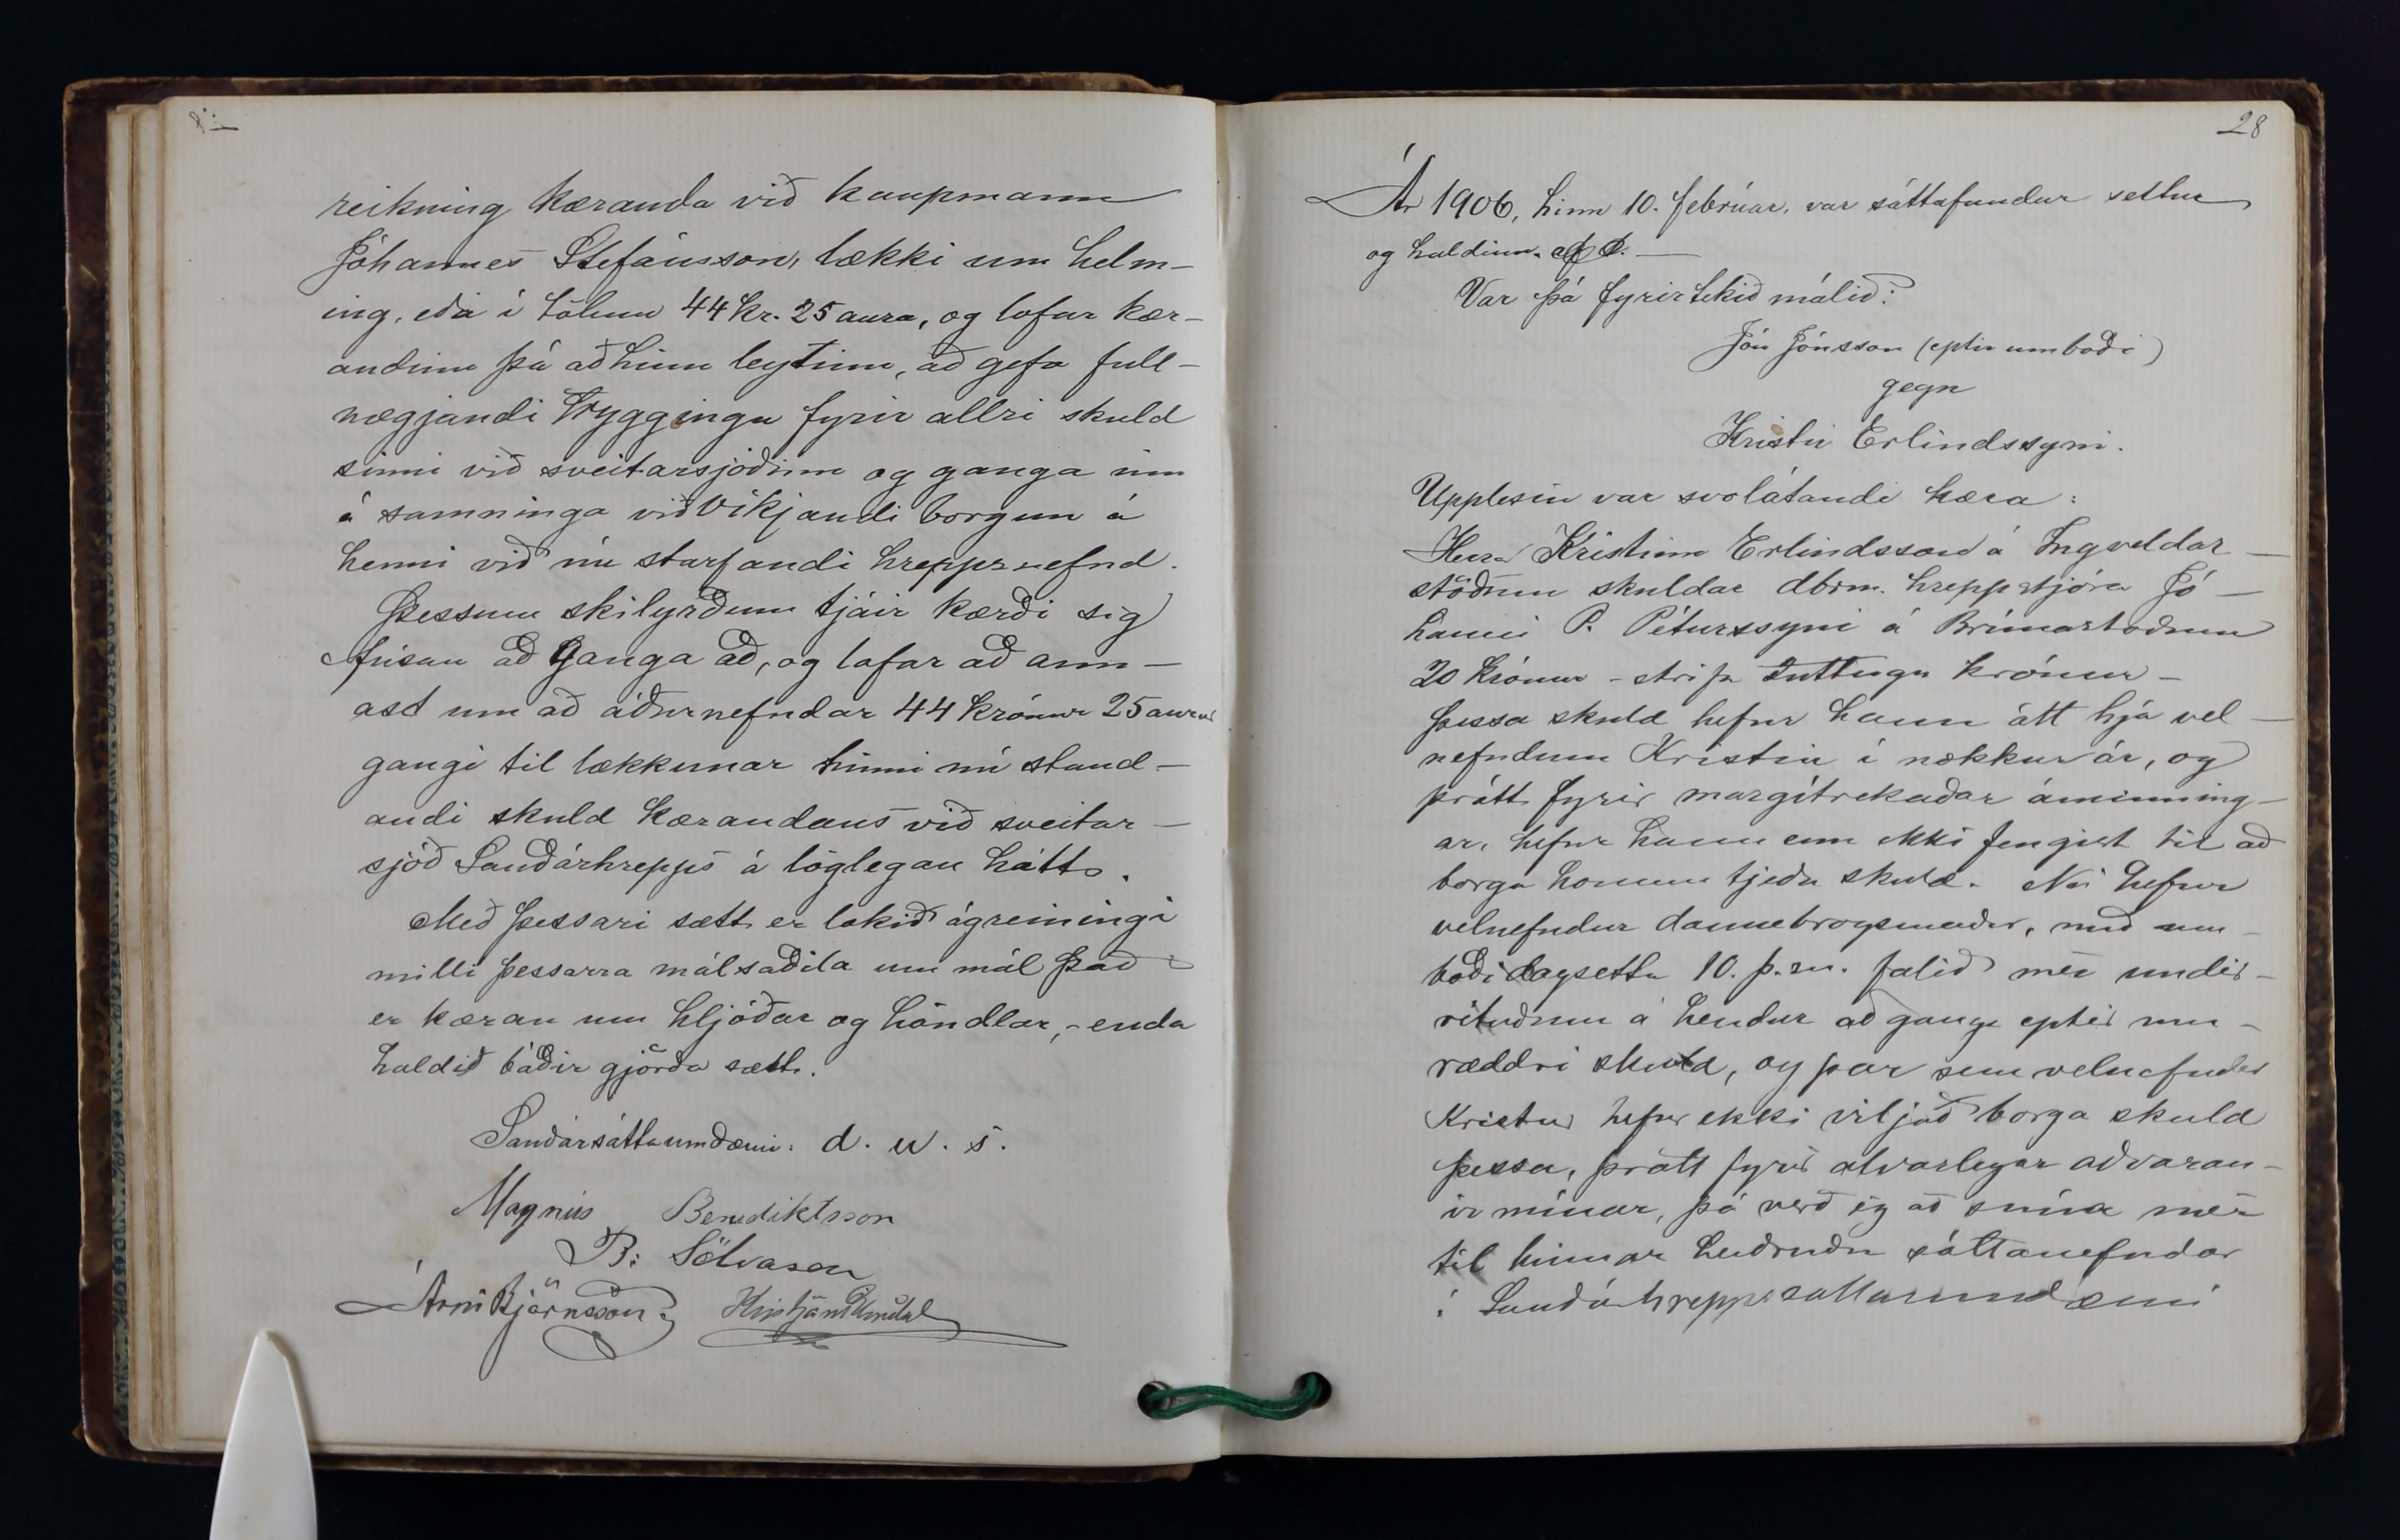 reikning kæranda við kaupmann
Jóhannes Stefánsson, lækki um helm-
ing, eða í tölum 44 kr. 25 aura, og lofar kær-
andinn þá að hinu leytinu, að gefa full-
nægjandi tryggingu fyrir allri skuld
sinni við sveitarsjóðinn og ganga inn
á samninga viðvíkjandi borgun á
henni við nú starfandi hreppsnefnd.
Þessum skilyrðum tjáir kærði sig
fúsan að ganga að, og lofar að ann-
ast um að áðurnefndar 44 krónur 25 aurar
gangi til lækkunar hinni nú stand-
andi skuld kærandans við sveitar-
sjóð Sauðárhrepps á löglegan hátt.
Með þessari sætt er lokið ágreiningi
milli þessarra málsaðila um mál það
er kæran um hljóðar og höndlar, - enda
haldið báðir gjörða sætt.
Sauðársáttaumdæmi: d. u. s.
Magnús Benediktsson
B: Sölvason
Árni Björnsson. Kristján Blöndal
28
Ár 1906, hinn 10. febrúar, var sáttafundur settur
og haldinn.
Var þá fyrirtekið málið:
Jón Jónsson (eptir umboði)
gegn
Kristni Erlindssyni.
Upplesin var svolátandi kæra:
Herra Kristinn Erlindsson á Ingveldar-
stöðum skuldar dbrm. hreppstjóra Jó-
hanni P. Péturssyni á Brúnastöðum
20 krónur - skrifa tuttugu krónur -
Þessa skuld hefur hann átt hjá vel-
nefndum Kristni í nokkur ár, og
þrátt fyrir margítrekaðar áminning-
ar, hefur hann enn ekki fengist til að
borga honum tjeða skuld. Nú hefur
velnefndur dannebrogsmaður, með um-
boði dagsettu 10. þ. m. falið mér undir-
rituðum á hendur að ganga eptir um-
ræddri skuld, og þar sem velnefndur
Kristinn hefur ekki viljað borga skuld
þessa, þrátt fyrir alvarlegar aðvaran-
ir mínar, þá verð ég að snúa mér
til hinnar heiðruðu sáttanefndar
í Sauðárhreppssáttaumdæmi